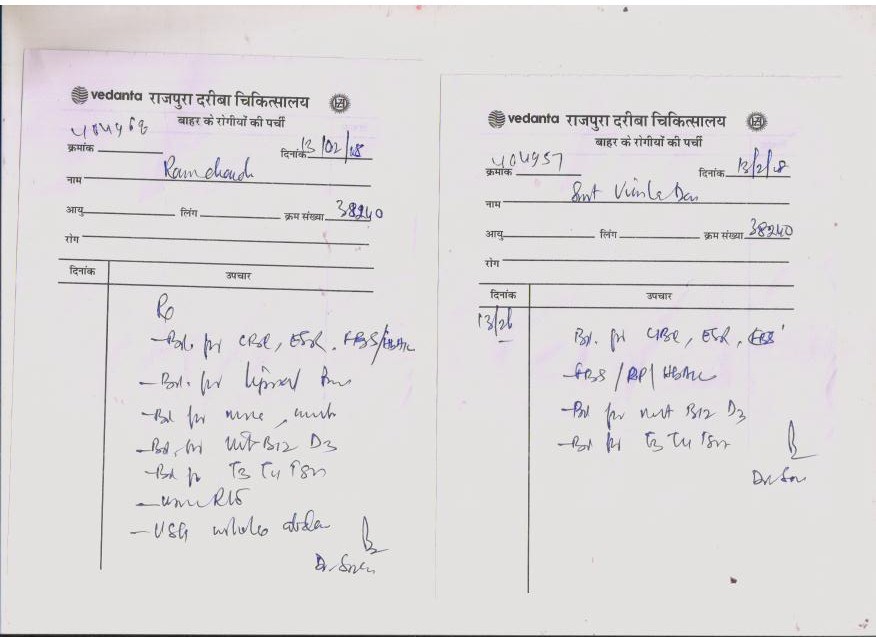 vedanta राजपुरा दरीबा चिकित्सालय
बाहर के रोगीयों की पर्ची
क्रमांक
दिनांक 13/02/18
नाम Ramchand
आयु लिंग क्रम संख्या 38240
रोग
दिनांक उपचार
- Bl. for CBC, ESR, FBS/HBA1c
- Bl. for
- Bl for
- Bl. for Vit B12 D3
- Bl for T3 T4 TSH
- Urine R/E
- USG whole abdo
Dr.
vedanta राजपुरा दरीबा चिकित्सालय
बाहर के रोगीयों की पर्ची
क्रमांक 404957
दिनांक 13/2/18
नाम Smt Vimla Devi
आयु लिंग क्रम संख्या 38240
रोग
दिनांक उपचार
Bl. for CBC, ESR,
- FBS / PP / HBA1c
- Bl for Vit B12 D3
- Bl for T3 T4 TSH
Dr.